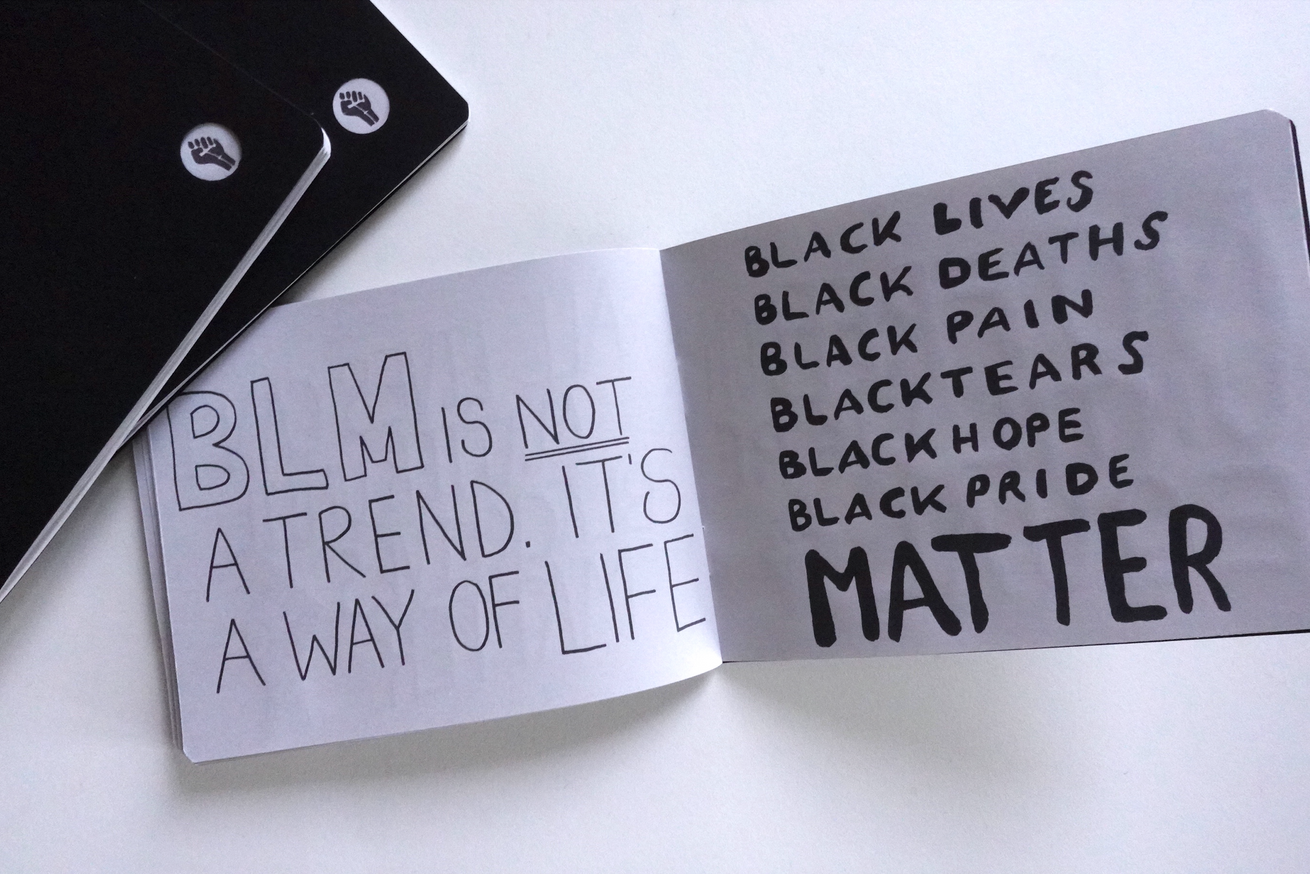 BLM IS NOT
A TREND. IT'S
A WAY OF LIFE
BLACK LIVES
BLACK DEATHS
BLACK PAIN
BLACK TEARS
BLACK HOPE
BLACK PRIDE
MATTER